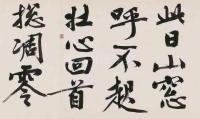 此日山窓
呼不起
壮心回首
總凋零